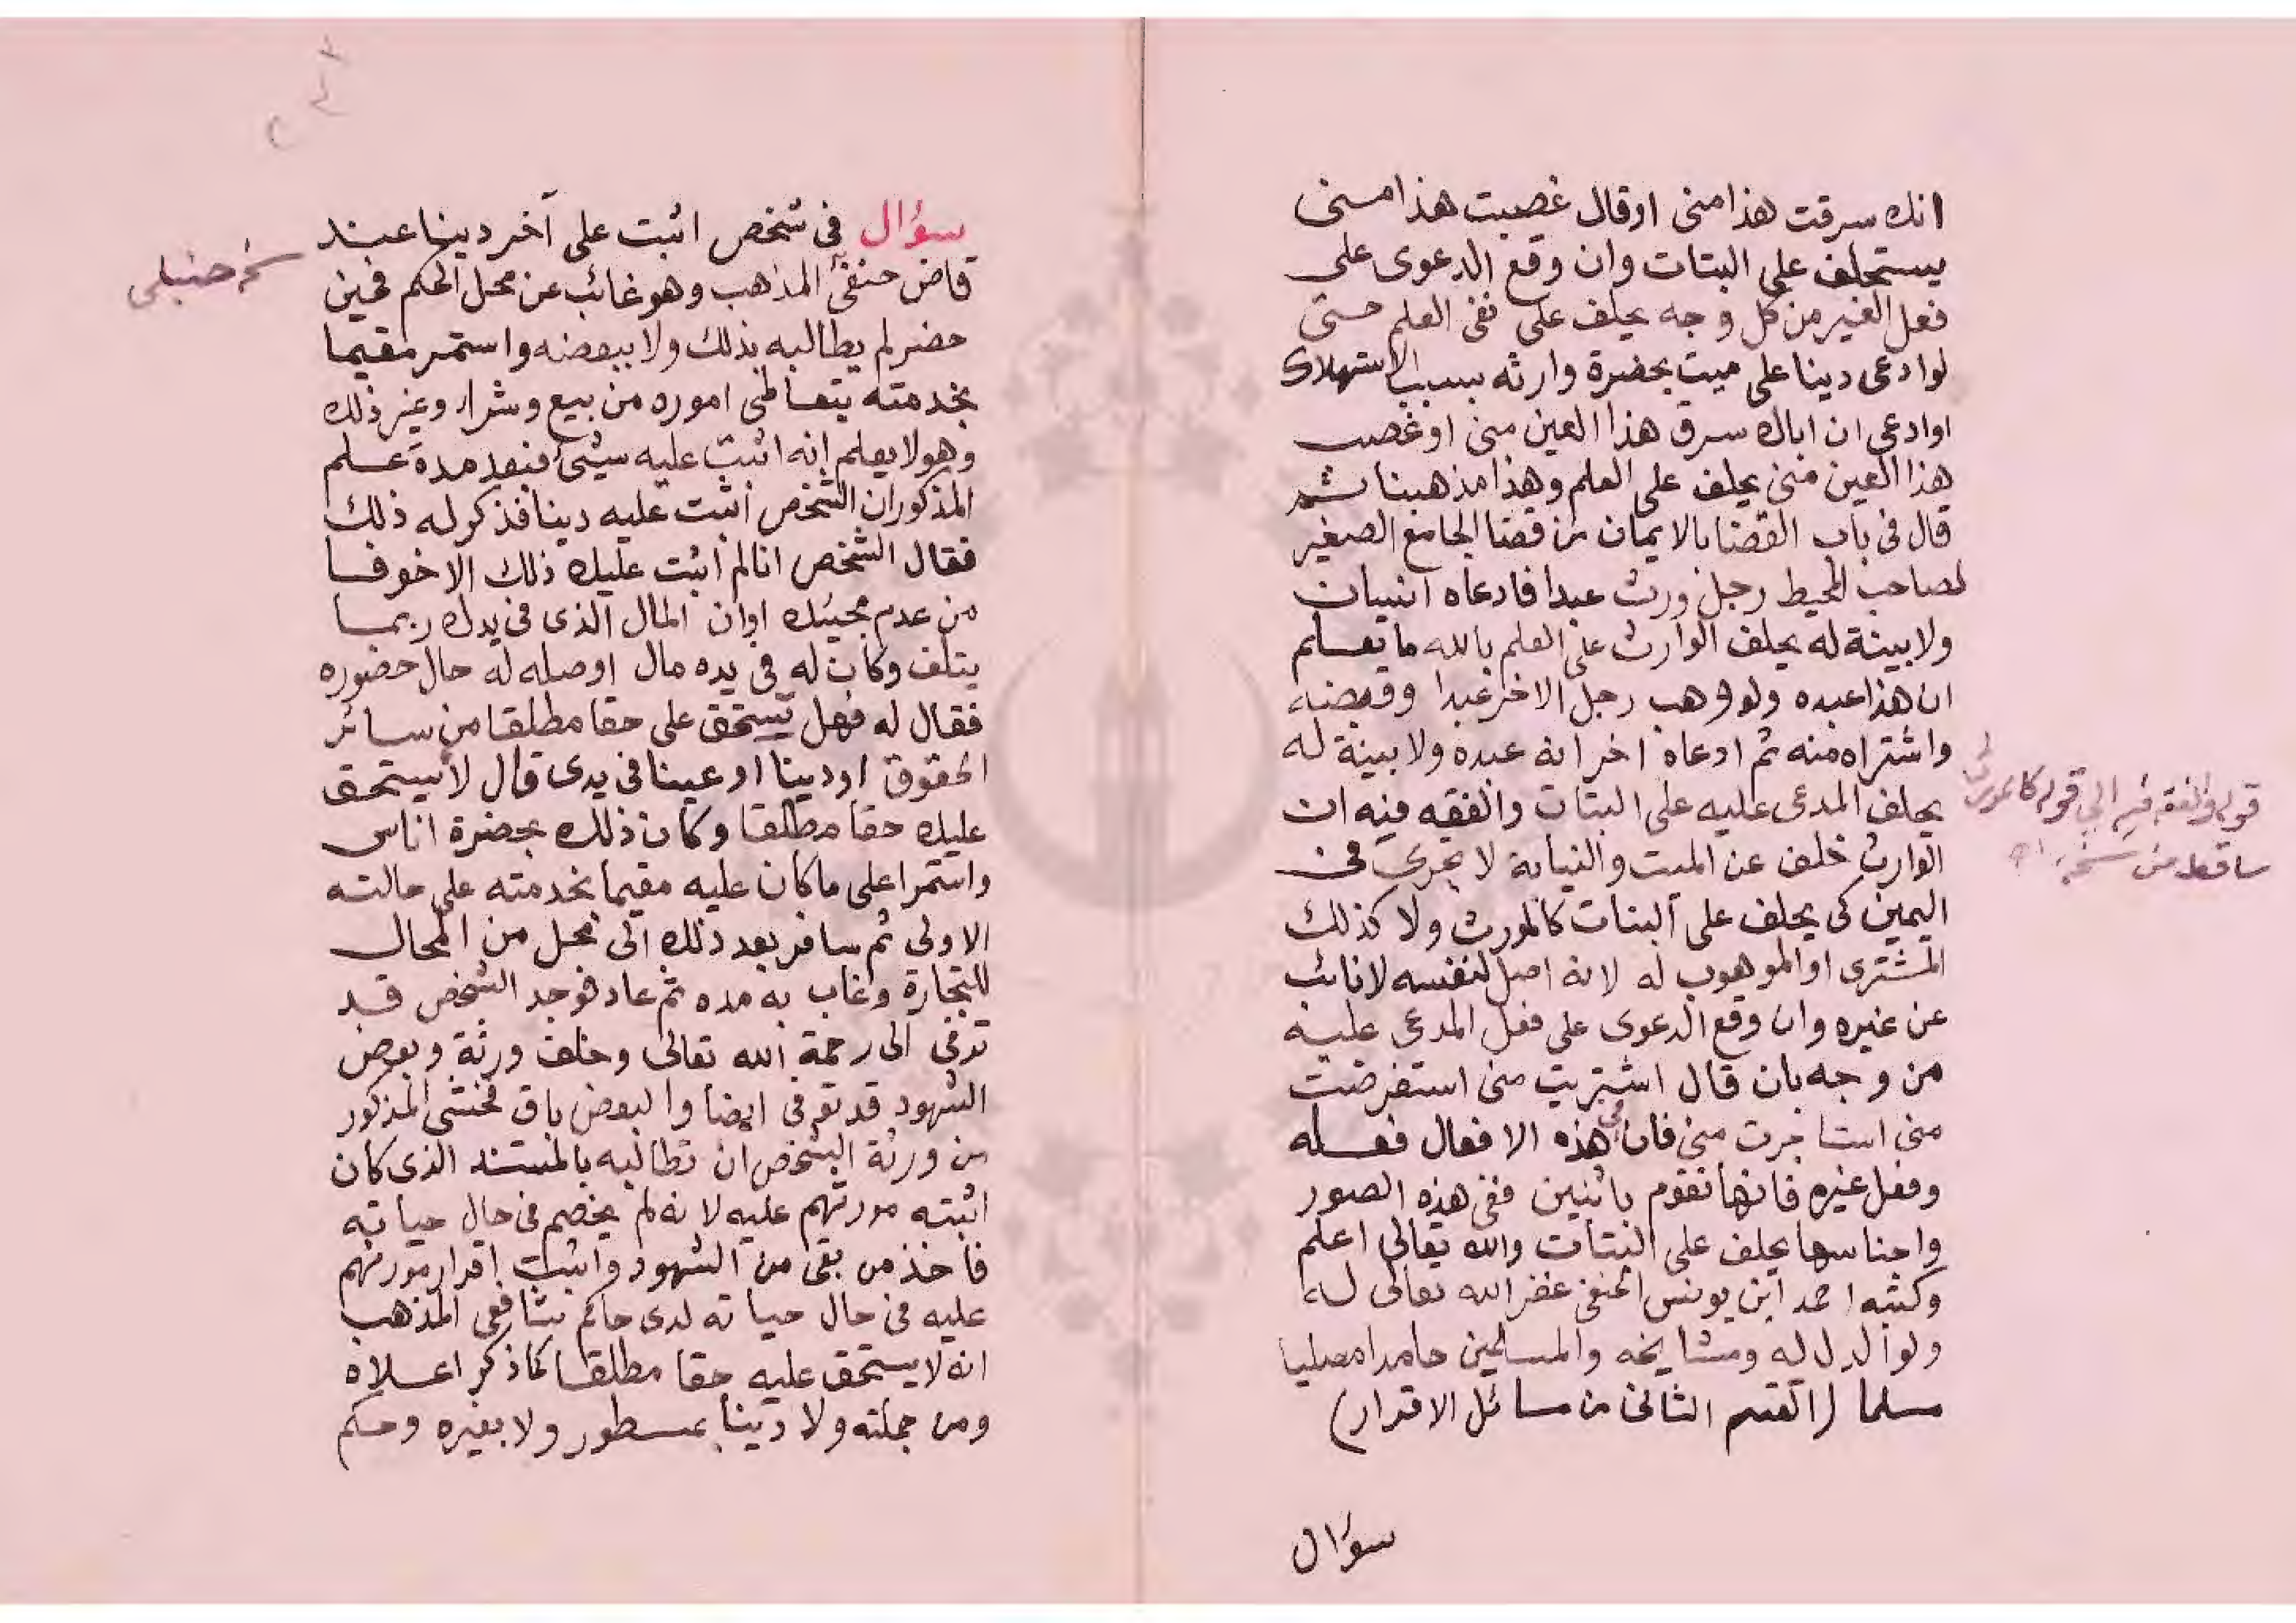 انك سرقت هذا منى او قال غصبت هذا منى
يستحلف على البتات وان وقع الدعوى على
فعل الغير من كل وجه يحلف على نفى العلم حتى
لو ادعى دينا على ميت بحضرة وارثه بسبب الاستهلاك
او ادعى ان اباك سرق هذا العين منى او غصب
هذا العين منى يحلف على العلم وهذا مذهبنا ثم
قال فى باب القضا بالايمان من قضا الجامع الصغير
لصاحب المحيط رجل ورث عبدا فادعاه انسان
ولا بينة له يحلف الوارث على العلم بالله ما يعلم
ان هذا عبده ولو وهب رجل الاخر عبدا وقبضه
واشتراه منه ثم ادعاه اخر انه عبده ولا بينة له
يحلف المدعى عليه على البتات والفقه فيه ان
الوارث خلف عن الميت والنيابة لا تجرى فى
اليمين كى يحلف على البتات كالمورث ولا كذلك
المشترى او الموهوب له لانه اصل لنفسه لا نائب
عن غيره وان وقع الدعوى على فعل المدعى عليه
من وجه بان قال اشتريت منى استقرضت
منى استاجرت منى فان فى هذه الافعال فعله
وفعل غيره فانها تقوم باثنين ففى هذه الصور
واجناسها يحلف على البتات والله تعالى اعلم
وكتبه احمد ابن يونس الحنفى غفر الله تعالى له
ولوالديه ومشايخه والمسلمين حامدا مصليا
مسلما (القسم الثانى من مسائل الاقرار)
سؤال
قوله والفقه فيه الى قوله كالمورث
ساقط من نسخة اه
سؤال فى شخص اثبت على آخر دينا عند
قاض حنفى المذهب وهو غائب عن محل الحكم فحين
حضر لم يطالبه بذلك ولا ببعضه واستمر مقيما
بخدمته يتعاطى اموره من بيع وشراء وغير ذلك
وهو لا يعلم انه اثبت عليه شيئ فبعد مدة علم
المذكور ان الشخص اثبت عليه دينا فذكر له ذلك
فقال الشخص انا لم اثبت عليك ذلك الا خوفا
من عدم مجيئك او ان المال الذى فى يدك ربما
يتلف وكان له فى يده مال اوصله له حال حضوره
فقال له فهل تستحق على حقا مطلقا من سائر
الحقوق او دينا او عينا فى يدى قال لا نستحق
عليك حقا مطلقا وكان ذلك بحضرة اناس
واستمر اعلى ما كان عليه مقيما بخدمته على حالته
الاولى ثم سافر بعد ذلك الى محل من المحال
للتجارة وغاب به مده ثم عاد فوجد الشخص قد
توفى الى رحمة الله تعالى وخلف ورثة وبعض
الشهود قد توفى ايضا والبعض باق فخشى المذكور
من ورثة الشخص ان تطالبه بالمستند الذى كان
اثبته مورثهم عليه لانه لم يخصم فى حال حياته
فاخذ من بقى من الشهود واثبت اقرار مورثهم
عليه فى حال حياته لدى حاكم شافعى المذهب
انه لا يستحق عليه حقا مطلقا كما ذكر اعلاه
ومن جملته ولا دينا بمسطور ولا بغيره وحكم
نخ حنبلى